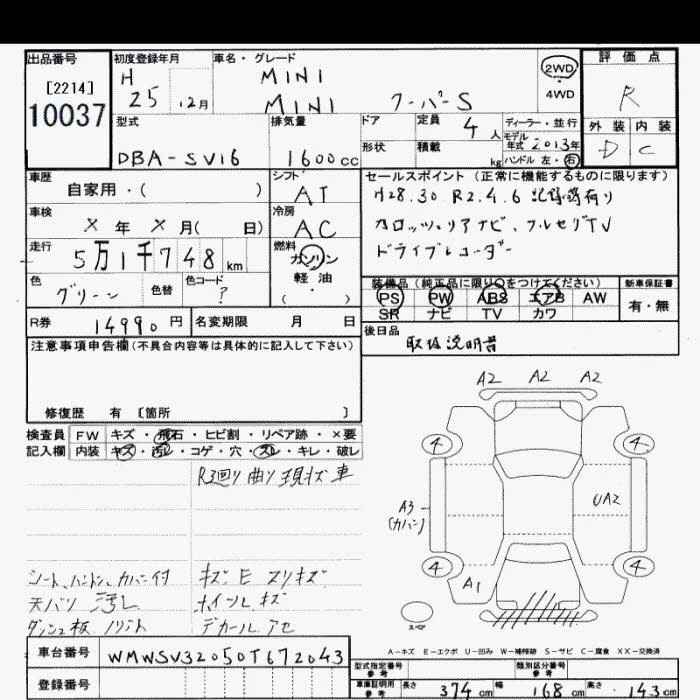 出品番号
[2214]
10037
初度登録年月
H 25 12月
車名・グレード
MINI
MINI クーパーS
2WD
4WD
評価点
R
外装 内装
D C
型式
DBA-SV16
排気量
1600cc
ドア
形状
定員 4人
積載 kg
ディーラー・並行
モデル年式 2013年
ハンドル 左・右
車歴
自家用・( )
車検
X年X月( 日)
走行
5万1千748km
色
グリーン
色替
色コード
?
シフト
AT
冷房
AC
燃料
ガソリン
軽油
( )
セールスポイント(正常に機能するものに限ります)
H28.30 R2.4.6 記録簿有り
カロッツェリアナビ、フルセグTV
ドライブレコーダー
装備品(純正品に限り○をつけてください)
PS PW ABS エアB AW
SR ナビ TV カワ
新車保証書
有・無
後日品
取扱説明書
R券 14990円
名変期限 月 日
注意事項申告欄(不具合内容等は具体的に記入して下さい)
修復歴 有 〔箇所 〕
検査員記入欄
FW キズ・飛石・ヒビ割・リペア跡・×要
内装 キズ・汚レ・コゲ・穴・スレ・キレ・破レ
R3廻り曲り現状車
シート、ハンドル、カバー付
天バリ 汚レ
ダッシュ板 ノリジト
キズ E スリキズ
ホイールキズ
デカール アセ
A2 A2 A2
4 4
A3
(カバー)
UA2
4 4
A1
スペア
A-キズ E-エクボ U-凹み W-補修跡 S-サビ C-腐食 XX-交換済
車台番号 WMWSV32050T672043
登録番号
型式指定番号 参考
類別区分番号 参考
車庫証明用 参考 長さ 374cm 幅 168cm 高さ 143cm